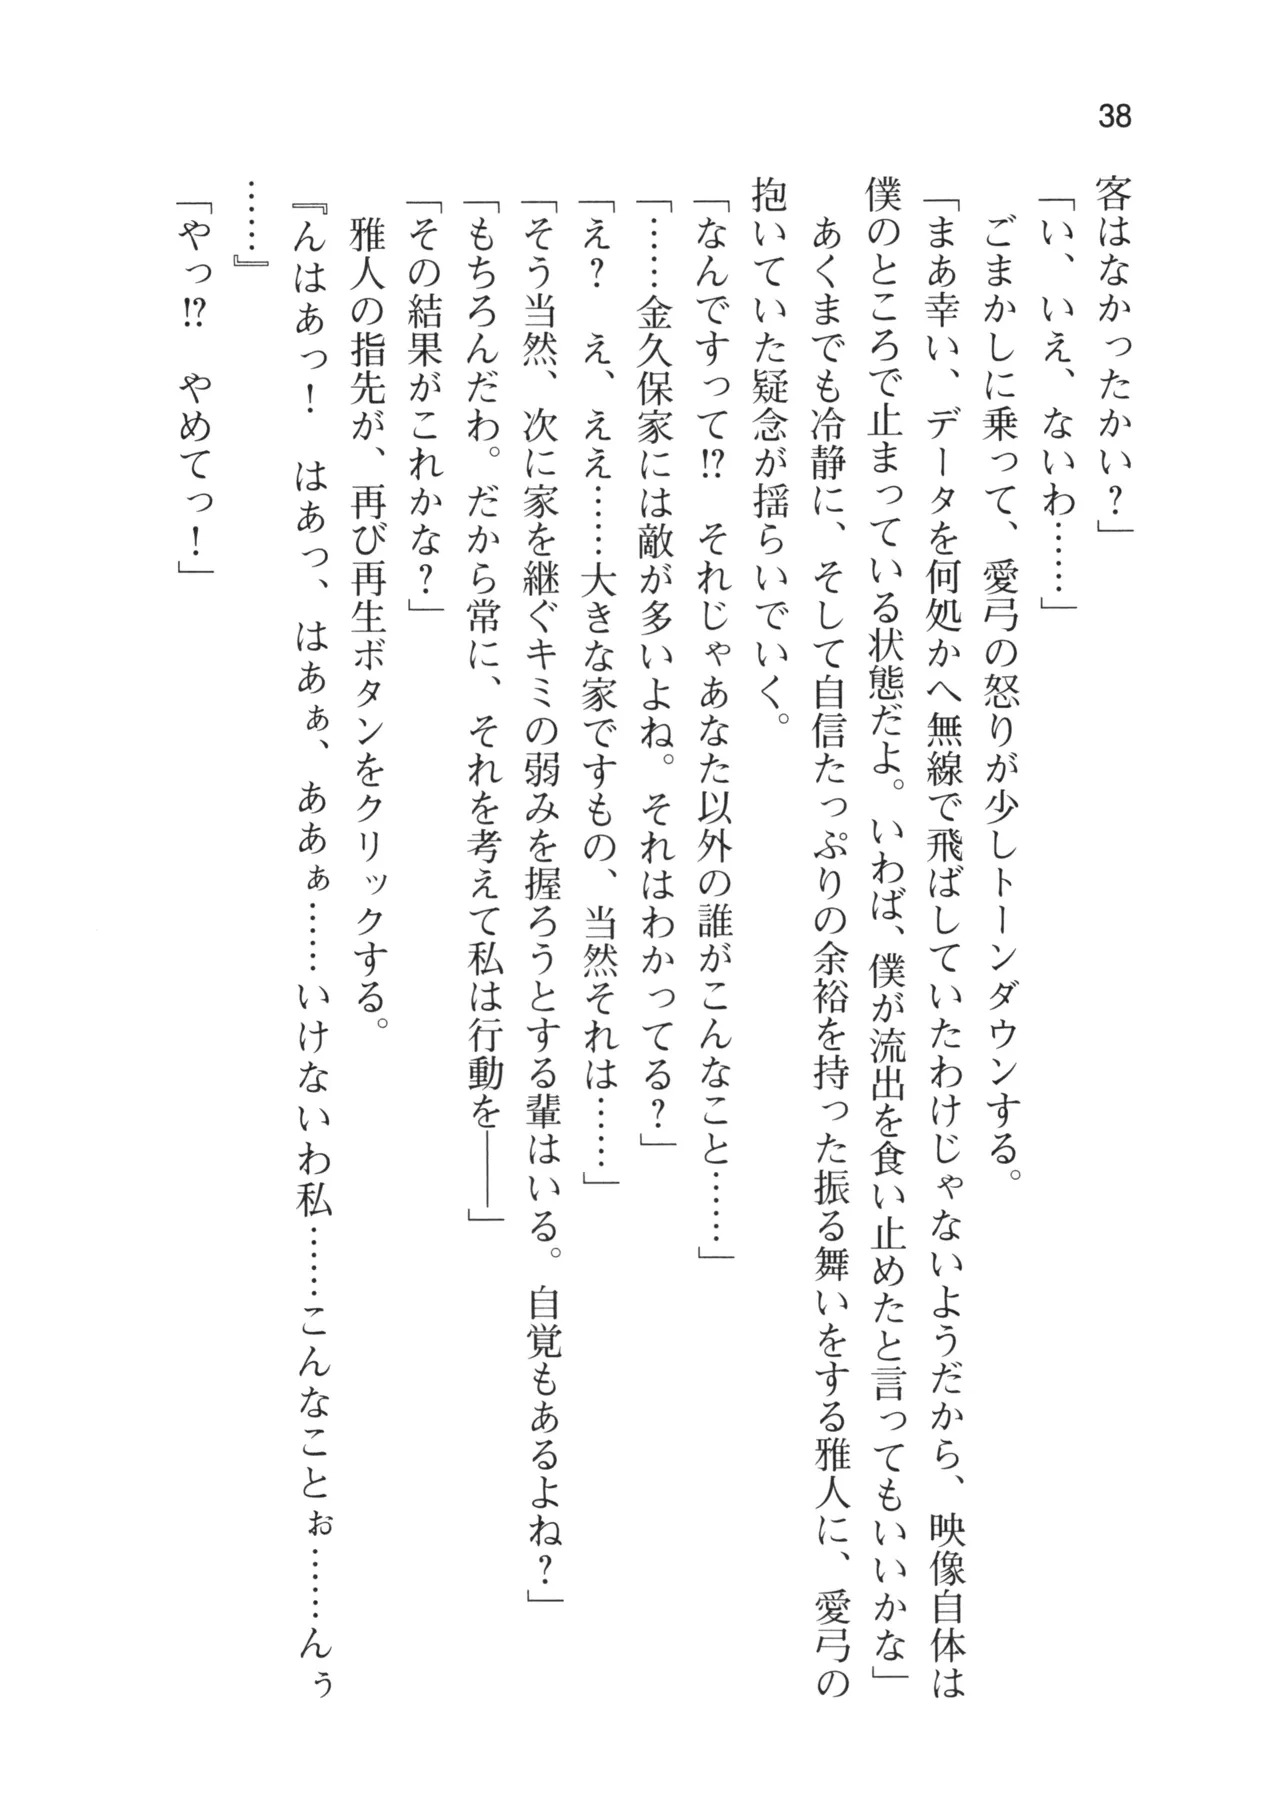 38
客はなかったかい？」
「い、いえ、ないわ……」
ごまかしに乗って、愛弓の怒りが少しトーンダウンする。
「まあ幸い、データを何処かへ無線で飛ばしていたわけじゃないようだから、映像自体は
僕のところで止まっている状態だよ。いわば、僕が流出を食い止めたと言ってもいいかな」
あくまでも冷静に、そして自信たっぷりの余裕を持った振る舞いをする雅人に、愛弓の
抱いていた疑念が揺らいでいく。
「なんですって!?　それじゃあなた以外の誰がこんなこと……」
「……金久保家には敵が多いよね。それはわかってる？」
「え？　え、ええ……大きな家ですもの、当然それは……」
「そう当然、次に家を継ぐキミの弱みを握ろうとする輩はいる。自覚もあるよね？」
「もちろんだわ。だから常に、それを考えて私は行動を――」
「その結果がこれかな？」
雅人の指先が、再び再生ボタンをクリックする。
『んはあっ！　はあっ、はあぁ、ああぁ……いけないわ私……こんなことぉ……んぅ
……』
「やっ!?　やめてっ！」